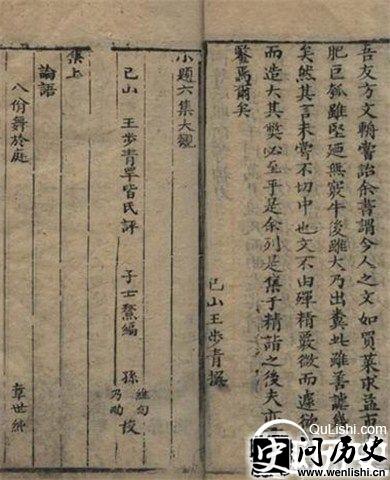 吾友方文輈嘗詒余書謂今人之文如買菜求益市
肥巨瓠雖堅廼無竅牛後雖大乃出糞此雖善謔
矣然其言未嘗不切中也文不由殫精覈微而遽欲
而造大其獘必至乎是余列是集于精詣之後夫亦
鑒焉爾矣
己山王步青撰
小題六集大觀
己山 王步青罕皆民評 子士鰲編 孫 維甸 乃昀 校
集上
論語
八佾舞於庭
章世純
QuLishi.com
史问历史
www.wenlishi.cn